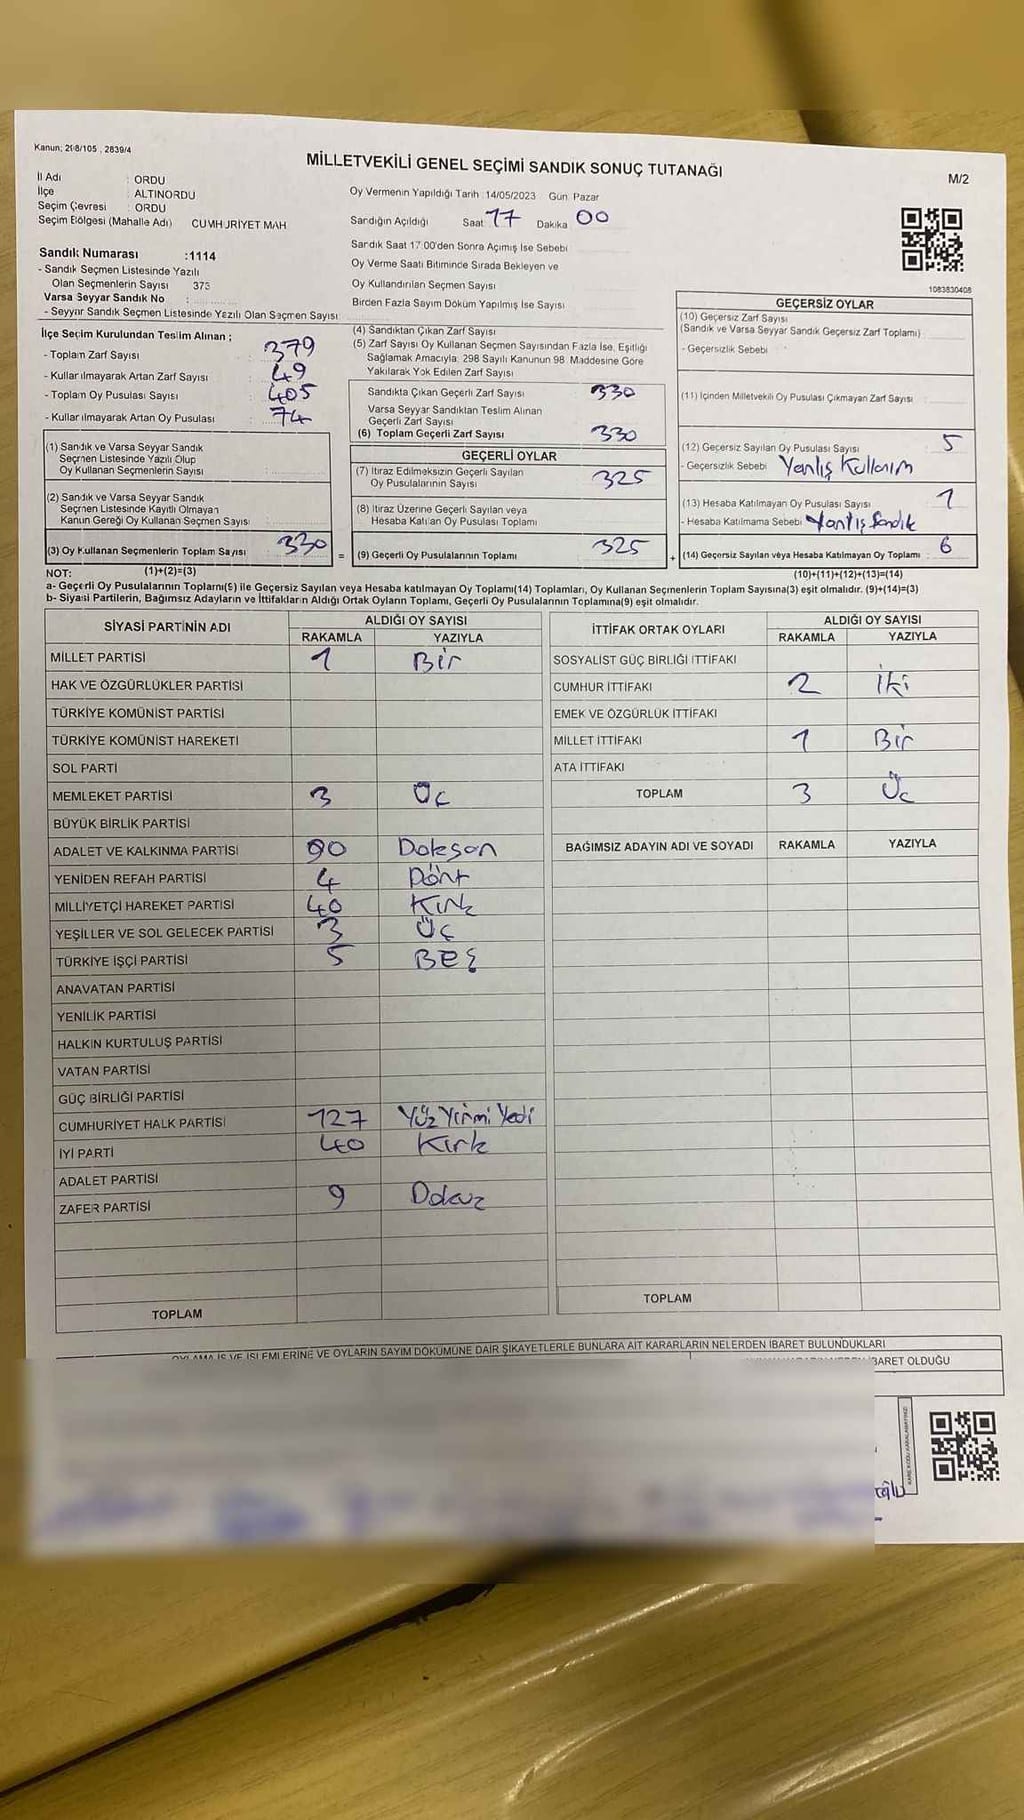 Kanun; 298/105 , 2839/4
MİLLETVEKİLİ GENEL SEÇİMİ SANDIK SONUÇ TUTANAĞI
M/2
İl Adı : ORDU
İlçe : ALTINORDU
Seçim Çevresi : ORDU
Seçim Bölgesi (Mahalle Adı) CUMHURİYET MAH
Oy Vermenin Yapıldığı Tarih : 14/05/2023 Gün: Pazar
Sandığın Açıldığı Saat 17 Dakika 00
Sandık Saat 17:00'den Sonra Açımış İse Sebebi
Oy Verme Saati Bitiminde Sırada Bekleyen ve
Oy Kullandırılan Seçmen Sayısı
Birden Fazla Sayım Döküm Yapılmış İse Sayısı
Sandık Numarası :1114
- Sandık Seçmen Listesinde Yazılı
Olan Seçmenlerin Sayısı 373
Varsa Seyyar Sandık No :
- Seyyar Sandık Seçmen Listesinde Yazılı Olan Seçmen Sayısı :
1083830408
İlçe Seçim Kurulundan Teslim Alınan ;
- Toplam Zarf Sayısı : 379
- Kullanılmayarak Artan Zarf Sayısı : 49
- Toplam Oy Pusulası Sayısı : 405
- Kullanılmayarak Artan Oy Pusulası : 74
(1) Sandık ve Varsa Seyyar Sandık
Seçmen Listesinde Yazılı Olup
Oy Kullanan Seçmenlerin Sayısı
(2) Sandık ve Varsa Seyyar Sandık
Seçmen Listesinde Kayıtlı Olmayan
Kanun Gereği Oy Kullanan Seçmen Sayısı
(3) Oy Kullanan Seçmenlerin Toplam Sayısı 330 =
(1)+(2)=(3)
(4) Sandıktan Çıkan Zarf Sayısı
(5) Zarf Sayısı Oy Kullanan Seçmen Sayısından Fazla İse, Eşitliği
Sağlamak Amacıyla; 298 Sayılı Kanunun 98. Maddesine Göre
Yakılarak Yok Edilen Zarf Sayısı
Sandıkta Çıkan Geçerli Zarf Sayısı 330
Varsa Seyyar Sandıktan Teslim Alınan
Geçerli Zarf Sayısı
(6) Toplam Geçerli Zarf Sayısı 330
GEÇERLİ OYLAR
(7) İtiraz Edilmeksizin Geçerli Sayılan
Oy Pusulalarının Sayısı 325
(8) İtiraz Üzerine Geçerli Sayılan veya
Hesaba Katılan Oy Pusulası Toplamı
(9) Geçerli Oy Pusulalarının Toplamı 325 +
GEÇERSİZ OYLAR
(10) Geçersiz Zarf Sayısı
(Sandık ve Varsa Seyyar Sandık Geçersiz Zarf Toplamı)
- Geçersizlik Sebebi
(11) İçinden Milletvekili Oy Pusulası Çıkmayan Zarf Sayısı
(12) Geçersiz Sayılan Oy Pusulası Sayısı 5
- Geçersizlik Sebebi Yanlış Kullanım
(13) Hesaba Katılmayan Oy Pusulası Sayısı 1
- Hesaba Katılmama Sebebi Yanlış Sandık
(14) Geçersiz Sayılan veya Hesaba Katılmayan Oy Toplamı 6
(10)+(11)+(12)+(13)=(14)
NOT:
a- Geçerli Oy Pusulalarının Toplamı(9) ile Geçersiz Sayılan veya Hesaba katılmayan Oy Toplamı(14) Toplamları, Oy Kullanan Seçmenlerin Toplam Sayısına(3) eşit olmalıdır. (9)+(14)=(3)
b- Siyasi Partilerin, Bağımsız Adayların ve İttifakların Aldığı Ortak Oyların Toplamı, Geçerli Oy Pusulalarının Toplamına(9) eşit olmalıdır.
SİYASİ PARTİNİN ADI ALDIĞI OY SAYISI
RAKAMLA YAZIYLA
MİLLET PARTİSİ 1 Bir
HAK VE ÖZGÜRLÜKLER PARTİSİ
TÜRKİYE KOMÜNİST PARTİSİ
TÜRKİYE KOMÜNİST HAREKETİ
SOL PARTİ
MEMLEKET PARTİSİ 3 Üç
BÜYÜK BİRLİK PARTİSİ
ADALET VE KALKINMA PARTİSİ 90 Doksan
YENİDEN REFAH PARTİSİ 4 Dört
MİLLİYETÇİ HAREKET PARTİSİ 40 Kırk
YEŞİLLER VE SOL GELECEK PARTİSİ 3 Üç
TÜRKİYE İŞÇİ PARTİSİ 5 BEŞ
ANAVATAN PARTİSİ
YENİLİK PARTİSİ
HALKIN KURTULUŞ PARTİSİ
VATAN PARTİSİ
GÜÇ BİRLİĞİ PARTİSİ
CUMHURİYET HALK PARTİSİ 127 Yüz Yirmi Yedi
İYİ PARTİ 40 Kırk
ADALET PARTİSİ
ZAFER PARTİSİ 9 Dokuz
TOPLAM
İTTİFAK ORTAK OYLARI ALDIĞI OY SAYISI
RAKAMLA YAZIYLA
SOSYALİST GÜÇ BİRLİĞİ İTTİFAKI
CUMHUR İTTİFAKI 2 İki
EMEK VE ÖZGÜRLÜK İTTİFAKI
MİLLET İTTİFAKI 1 Bir
ATA İTTİFAKI
TOPLAM 3 Üç
BAĞIMSIZ ADAYIN ADI VE SOYADI RAKAMLA YAZIYLA
TOPLAM
OYLAMA İŞ VE İŞLEMLERİNE VE OYLARIN SAYIM DÖKÜMÜNE DAİR ŞİKAYETLERLE BUNLARA AİT KARARLARIN NELERDEN İBARET BULUNDUKLARI
İBARET OLDUĞU